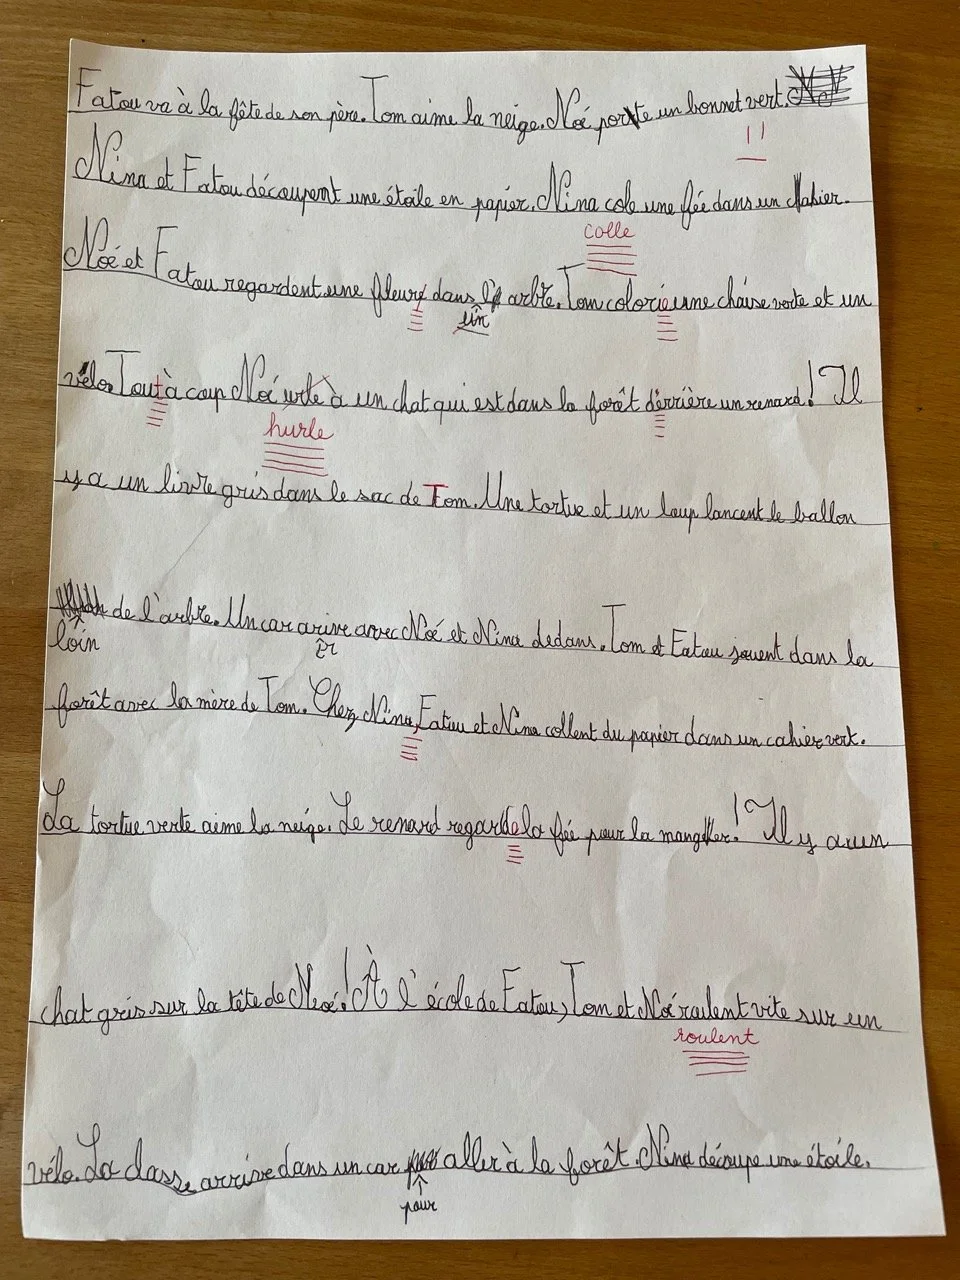 Fatou va à la fête de son père. Tom aime la neige. Noé porte un bonnet vert.
11
Nina et Fatou découpent une étoile en papier. Nina cole une fée dans un cahier.
colle
Noé et Fatou regardent une fleur dans arbre. Tom colorie une chaise verte et un
un
vélo. Tout à coup Noé urle à un chat qui est dans la forêt derrière un renard! Il
hurle
y a un livre gris dans le sac de Tom. Une tortue et un loup lancent le ballon
de l'arbre. Un car arive avec Noé et Nina dedans. Tom et Fatou jouent dans la
loin
forêt avec la mère de Tom. Chez Nina, Fatou et Nina collent du papier dans un cahier vert.
La tortue verte aime la neige. Le renard regarde la fée pour la manger! Il y a un
chat gris sur la tête de Noé! À l'école de Fatou, Tom et Noé roulent vite sur un
roulent
vélo. La classe arrive dans un car aller à la forêt. Nina découpe une étoile.
pour